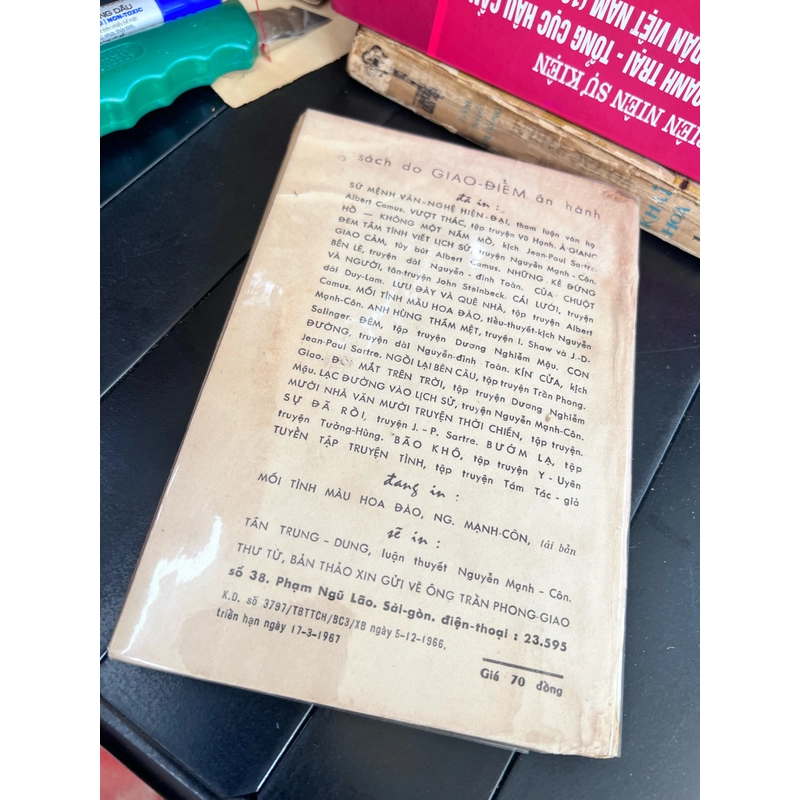 ỤNG DẦU
NON-TOXIC
BIÊN NIÊN SỰ KIỆN
DOANH TRẠI - TỔNG CỤC HẬU CẦN
sách do GIAO-ĐIỂM ấn hành
đã in :
SỨ MỆNH VĂN-NGHỆ HIỆN-ĐẠI, tham luận văn họ
Albert Camus. VƯỢT THÁC, tập truyện Võ Hạnh. Ả GIANG
HỒ — KHÔNG MỘT NẤM MỒ, kịch Jean-Paul Sartre.
ĐEM TÂM TÌNH VIẾT LỊCH SỬ, truyện Nguyễn Mạnh - Côn.
GIAO CẢM, tùy bút Albert Camus. NHỮNG KẺ ĐỨNG
BÊN LỀ, truyện dài Nguyễn - đình Toàn. CỦA CHUỘT
VÀ NGƯỜI, tân-truyện John Steinbeck. CÁI LƯỚI, truyện
dài Duy-Lam. LƯU ĐÀY VÀ QUÊ NHÀ, tập truyện Albert
Camus. MỐI TÌNH MÀU HOA ĐÀO, tiểu-thuyết-kịch Nguyễn
Mạnh-Côn. ANH HÙNG THẤM MỆT, truyện I. Shaw và J.-D.
Salinger. ĐÊM, tập truyện Dương Nghiễm Mậu. CON
ĐƯỜNG, truyện dài Nguyễn-đình Toàn. KÍN CỬA, kịch
Jean-Paul Sartre. NGỒI LẠI BÊN CẦU, tập truyện Trần Phong.
Giao. ĐÔI MẮT TRÊN TRỜI, tập truyện Dương Nghiễm
Mậu. LẠC ĐƯỜNG VÀO LỊCH SỬ, truyện Nguyễn Mạnh-Côn.
MƯỜI NHÀ VĂN MƯỜI TRUYỆN THỜI CHIẾN, tập truyện.
SỰ ĐÃ RỒI, truyện J. - P. Sartre. BƯỚM LẠ, tập
truyện Tưởng-Hùng. BÃO KHÔ, tập truyện Y - Uyên
TUYỂN TẬP TRUYỆN TÌNH, tập truyện Tám Tác - giả
đang in :
MỐI TÌNH MÀU HOA ĐÀO, NG. MẠNH-CÔN, tái bản
sẽ in :
TÂN TRUNG - DUNG, luận thuyết Nguyễn Mạnh - Côn.
THƯ TỪ, BẢN THẢO XIN GỬI VỀ ÔNG TRẦN PHONG-GIAO
số 38. Phạm Ngũ Lão. Sài-gòn. điện-thoại : 23.595
K.D. số 3797/TBTTCH/BC3/XB ngày 5-12-1966,
triển hạn ngày 17-3-1967
Giá 70 đồng